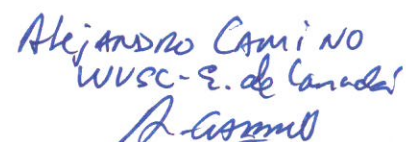 Alejandro Camino
WUSC - E. de Canadá
A. Camino